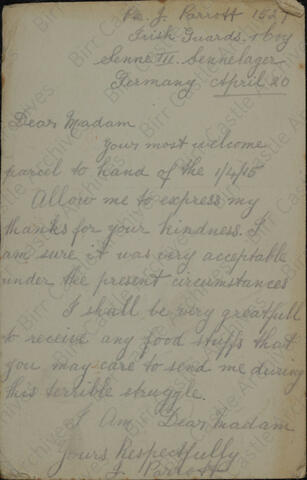 Pte. J. Parrott 1527
Irish Guards. Coy
Senne III. Sennelager
Germany April 20
Dear Madam
Your most welcome
parcel to hand of the 1/4/15
Allow me to express my
thanks for your kindness. I
am sure it was very acceptable
under the present circumstances
I shall be very greatfull
to receive any food stuffs that
you may care to send me during
this terrible struggle.
I Am Dear Madam
Yours Respectfully
J. Parrott